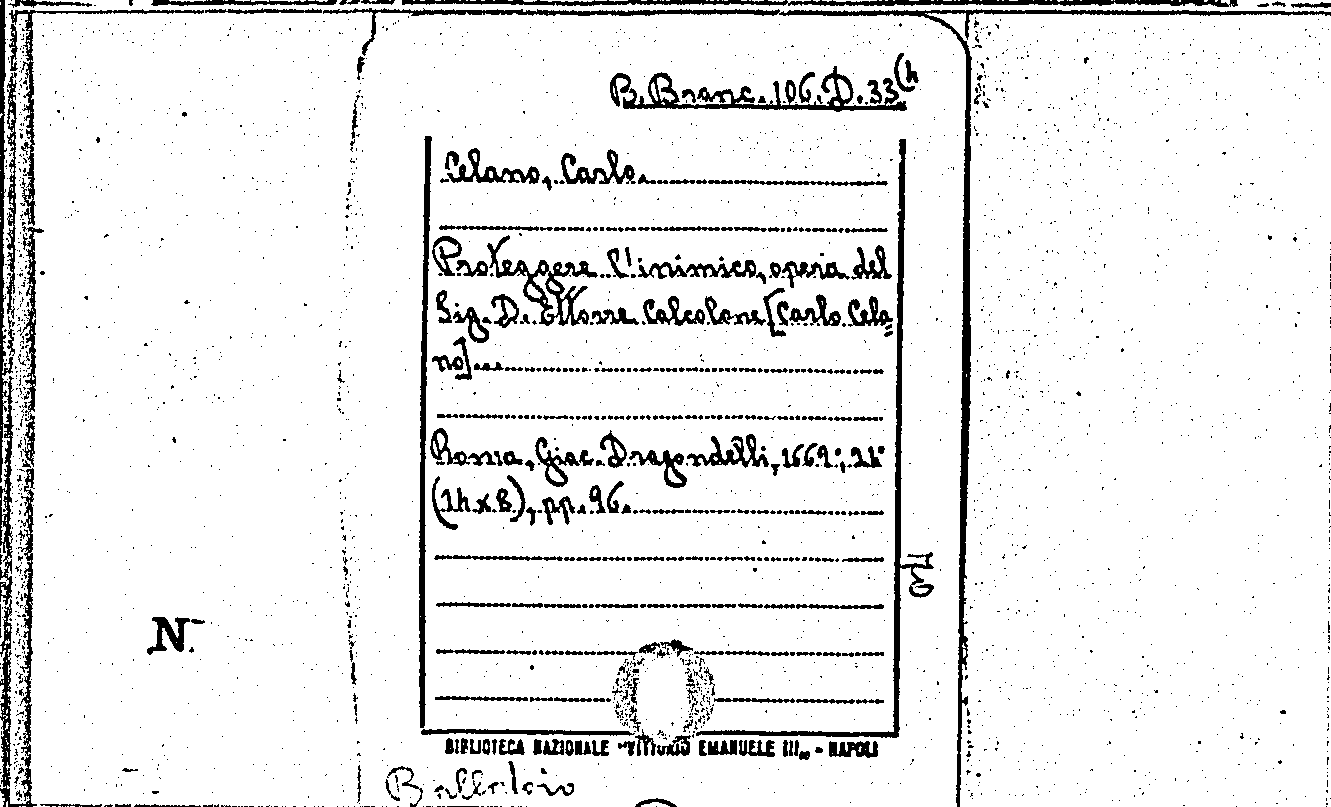 B. Branc. 106. D. 33(h
Celano, Carlo.
Proteggere l'inimico, opera del
Sig. D. Ettorre Calcolone [Carlo Cela=
no]...
Roma, Giac. Dragondelli, 1669;
pp. 96.
N.
BIBLIOTECA NAZIONALE "VITTORIO EMANUELE III„ - NAPOLI